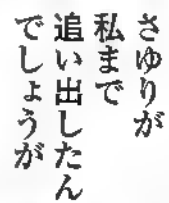 さゆりが
私まで
追い出したん
でしょうが